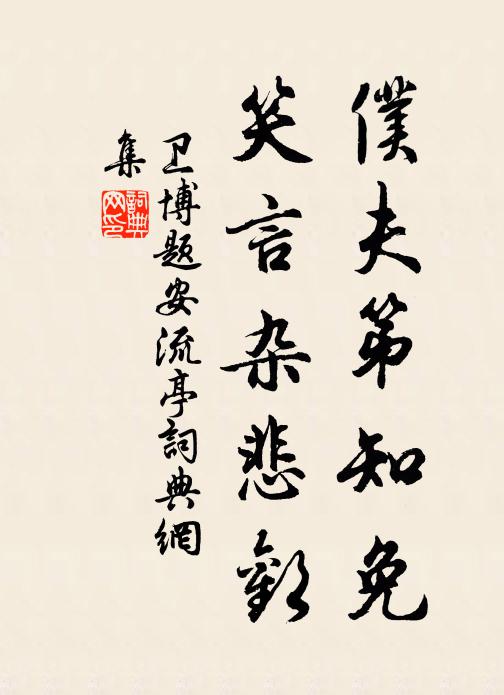 僕夫第知免
笑言杂悲歡
卫博题安流亭詞典網
集
詞典
网印